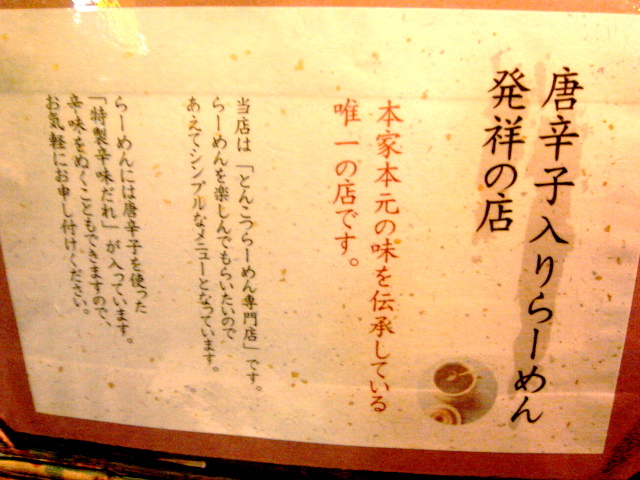 唐辛子入りらーめん
発祥の店
本家本元の味を伝承している
唯一の店です。
当店は「とんこつらーめん専門店」です。
らーめんを楽しんでもらいたいので
あえてシンプルなメニューとなっています。
らーめんには唐辛子を使った
「特製辛味だれ」が入っています。
辛味をぬくこともできますので、
お気軽にお申し付けください。